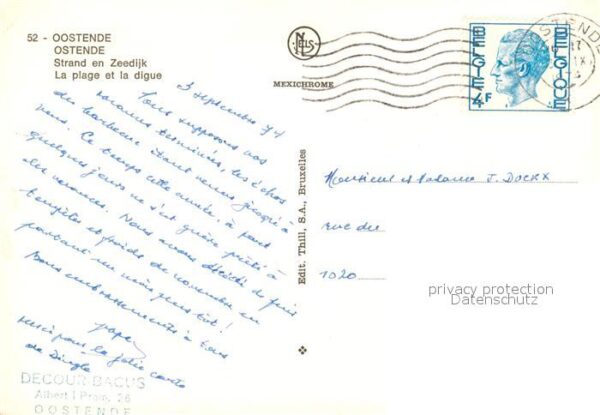 52 - OOSTENDE
OSTENDE
Strand en Zeedijk
La plage et la digue
NELS
MEXICHROME
BELGIE BELGIQUE
4F
3 septembre 74
Nous supposons vos
vacances terminées, les échos
des barbecues étant venus jusqu'à
nous. Ce temps cette année, à part
quelques jours ne s'est guère prêté à
des vacances. Nous avons décidé de fuir
tempêtes et froids de novembre en
partant un mois plus tôt!
Bons embrassements à tous
papa
Merci pour la jolie carte
de Dingle
Edit. Thill, S.A., Bruxelles
Monsieur et Madame J. DOCKX
rue du
1020
privacy protection
Datenschutz
DECOUR-BACUS
Albert I Prom. 26
OOSTENDE